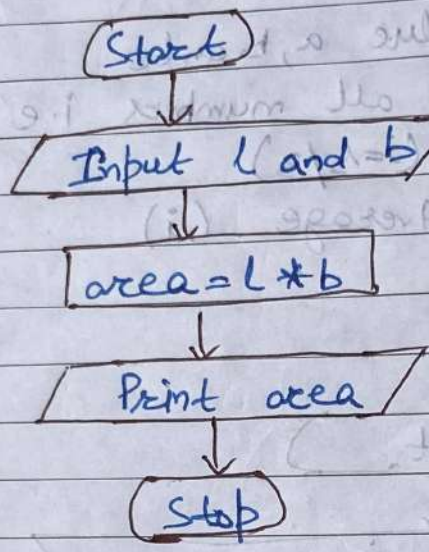 Start
Input l and b
area = l * b
Print area
Stop